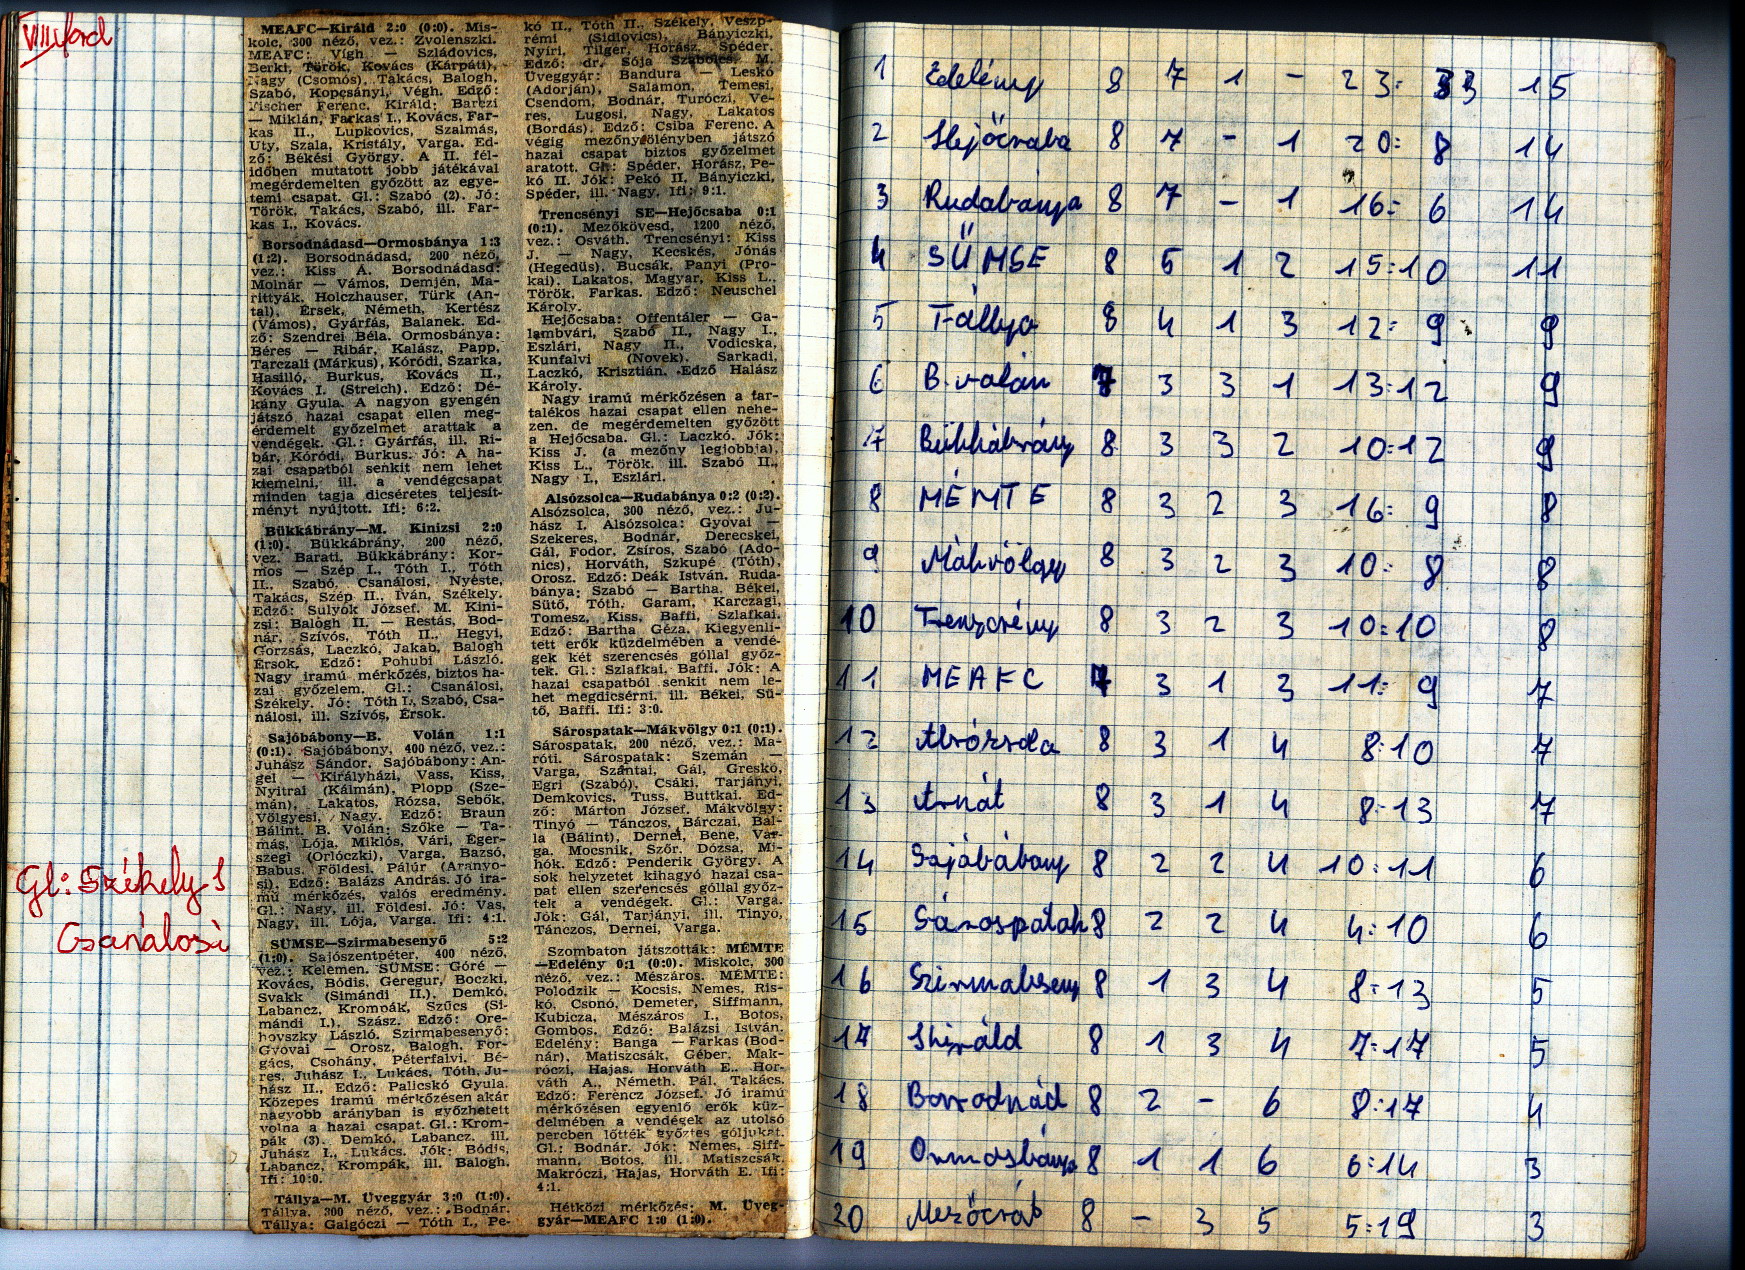 VIII. ford
Gl: Székely 1
Csanálosi
MEAFC—Királd 2:0 (0:0). Mis-
kolc, 300 néző, vez.: Zvolenszki.
MEAFC: Vigh — Szládovics,
Berki, Török, Kovács (Kárpáti),
Nagy (Csomós), Takács, Balogh,
Szabó, Kopcsányi, Végh. Edző:
Fischer Ferenc. Királd: Barczi
— Miklán, Farkas I., Kovács, Far-
kas II., Lupkovics, Szalmás,
Uty, Szala, Kristály, Varga. Ed-
ző: Békési György. A II. fél-
időben mutatott jobb játékával
megérdemelten győzött az egye-
temi csapat. Gl.: Szabó (2). Jó:
Török, Takács, Szabó, ill. Far-
kas I., Kovács.
Borsodnádasd—Ormosbánya 1:3
(1:2). Borsodnádasd, 200 néző,
vez.: Kiss A. Borsodnádasd:
Molnár — Vámos, Demjén, Ma-
rittyák, Holczhauser, Türk (An-
tal), Érsek, Németh, Kertész
(Vámos), Gyárfás, Balanek. Ed-
ző: Szendrei Béla. Ormosbánya:
Béres — Ribár, Kalász, Papp,
Tarczali (Márkus), Kóródi, Szarka,
Hasilló, Burkus, Kovács II.,
Kovács I. (Streich). Edző: Dé-
kány Gyula. A nagyon gyengén
játszó hazai csapat ellen meg-
érdemelt győzelmet arattak a
vendégek. Gl.: Gyárfás, ill. Ri-
bár, Kóródi, Burkus. Jó: A ha-
zai csapatból senkit nem lehet
kiemelni, ill. a vendégcsapat
minden tagja dicséretes teljesít-
ményt nyújtott. Ifi: 6:2.
Bükkábrány—M. Kinizsi 2:0
(1:0). Bükkábrány, 200 néző,
vez. Barati, Bükkábrány: Kor-
mos — Szép I., Tóth I., Tóth
II., Szabó, Csanálosi, Nyéste,
Takács, Szép II., Iván, Székely.
Edző: Sulyok József. M. Kini-
zsi: Balogh II. — Restás, Bod-
nár, Szívós, Tóth II., Hegyi,
Gorzsás, Laczkó, Jakab, Balogh
Érsok, Edző: Pohubi László.
Nagy iramú mérkőzés, biztos ha-
zai győzelem. Gl.: Csanálosi,
Székely. Jó: Tóth I., Szabó, Csa-
nálosi, ill. Szívós, Érsok.
Sajóbábony—B. Volán 1:1
(0:1). Sajóbábony, 400 néző, vez.:
Juhász Sándor. Sajóbábony: An-
gel — Királyházi, Vass, Kiss,
Nyitrai (Kálmán), Plopp (Sze-
mán), Lakatos, Rózsa, Sebők,
Völgyesi, Nagy. Edző: Braun
Bálint. B. Volán: Szőke — Ta-
más, Lója, Miklós, Vári, Eger-
szegi (Orlóczki), Varga, Bazsó,
Babus, Földesi, Pálúr (Aranyo-
si). Edző: Balázs András. Jó ira-
mú mérkőzés, valós eredmény.
Gl.: Nagy, ill. Földesi. Jó: Vas,
Nagy, ill. Lója, Varga. Ifi: 4:1.
SÜMSE—Szirmabesenyő 5:2
(1:0). Sajószentpéter, 400 néző,
vez.: Kelemen. SÜMSE: Góré —
Kovács, Bódis, Geregur, Boczki,
Svakk (Simándi II.), Demkó,
Labancz, Krompák, Szűcs (Si-
mándi I.), Szász. Edző: Ore-
hovszky László. Szirmabesenyő:
Gyovai — Orosz, Balogh, For-
gács, Csohány, Péterfalvi, Bé-
res, Juhász I., Lukács, Tóth, Ju-
hász II., Edző: Palicskó Gyula.
Közepes iramú mérkőzésen akár
nagyobb arányban is győzhetett
volna a hazai csapat. Gl.: Krom-
pák (3), Demkó, Labancz, ill.
Juhász I., Lukács. Jók: Bódis,
Labancz, Krompák, ill. Balogh.
Ifi: 10:0.
Tállya—M. Üveggyár 3:0 (1:0).
Tállya, 300 néző, vez.: Bodnár.
Tállya: Galgóczi — Tóth I., Pe-
kó II., Tóth II., Székely, Veszp-
rémi (Sidlovics), Bányiczki,
Nyíri, Tilger, Horász, Spéder.
Edző: dr. Sója Szabolcs. M.
Üveggyár: Bandura — Leskó
(Adorján), Salamon, Temesi,
Csendom, Bodnár, Turóczi, Ve-
res, Lugosi, Nagy, Lakatos
(Bordás). Edző: Csiba Ferenc. A
végig mezőnyfölényben játszó
hazai csapat biztos győzelmet
aratott. Gl.: Spéder, Horász, Pe-
kó II. Jók: Pekó II, Bányiczki,
Spéder, ill. Nagy. Ifi: 9:1.
Trencsényi SE—Hejőcsaba 0:1
(0:1). Mezőkövesd, 1200 néző,
vez.: Osváth. Trencsényi: Kiss
J. — Nagy, Kecskés, Jónás
(Hegedüs), Bucsák, Panyi (Pro-
kai). Lakatos, Magyar, Kiss L.,
Török, Farkas. Edző: Neuschel
Károly.
Hejőcsaba: Offentáler — Ga-
lambvári, Szabó II., Nagy I.,
Eszlári, Nagy II., Vodicska,
Kunfalvi (Novek), Sarkadi,
Laczkó, Krisztián. Edző Halász
Károly.
Nagy iramú mérkőzésen a tar-
talékos hazai csapat ellen nehe-
zen, de megérdemelten győzött
a Hejőcsaba. Gl.: Laczkó. Jók:
Kiss J. (a mezőny legjobbja),
Kiss L., Török, ill. Szabó II.,
Nagy I., Eszlári.
Alsózsolca—Rudabánya 0:2 (0:2).
Alsózsolca, 300 néző, vez.: Ju-
hász I. Alsózsolca: Gyovai —
Szekeres, Bodnár, Derecskei,
Gál, Fodor, Zsíros, Szabó (Ado-
nics), Horváth, Szkupé (Tóth),
Orosz. Edző: Deák István. Ruda-
bánya: Szabó — Bartha, Békei,
Sütő, Tóth, Garam, Karczagi,
Tomesz, Kiss, Baffi, Szlafkai.
Edző: Bartha Géza. Kiegyenlí-
tett erők küzdelmében a vendé-
gek két szerencsés góllal győz-
tek. Gl.: Szlafkai, Baffi. Jók: A
hazai csapatból senkit nem le-
het megdicsérni, ill. Békei, Sü-
tő, Baffi. Ifi: 3:0.
Sárospatak—Mákvölgy 0:1 (0:1).
Sárospatak, 200 néző, vez.: Ma-
róti. Sárospatak: Szemán —
Varga, Szántai, Gál, Greskó,
Egri (Szabó), Csáki, Tarjányi,
Demkovics, Tuss, Buttkai. Ed-
ző: Márton József, Mákvölgy:
Tinyó — Tánczos, Bárczai, Bal-
la (Bálint), Dernei, Bene, Var-
ga, Mocsnik, Szőr, Dózsa, Mi-
hók. Edző: Penderik György. A
sok helyzetet kihagyó hazai csa-
pat ellen szerencsés góllal győz-
tek a vendégek. Gl.: Varga.
Jók: Gál, Tarjányi, ill. Tinyó,
Tánczos, Dernei, Varga.
Szombaton játszották: MÉMTE
—Edelény 0:1 (0:0). Miskolc, 300
néző, vez.: Mészáros. MÉMTE:
Polodzik — Kocsis, Nemes, Ris-
kó, Csonó, Demeter, Siffmann,
Kubicza, Mészáros I., Botos,
Gombos. Edző: Balázsi István.
Edelény: Banga — Farkas (Bod-
nár), Matiszcsák, Géber, Mak-
róczi, Hajas, Horváth E., Hor-
váth A., Németh, Pál, Takács.
Edző: Ferencz József. Jó iramú
mérkőzésen egyenlő erők küz-
delmében a vendégek az utolsó
percben lőtték győztes góljukat.
Gl.: Bodnár. Jók: Nemes, Siff-
mann, Botos, ill. Matiszcsák,
Makróczi, Hajas, Horváth E. Ifi:
4:1.
Hétközi mérkőzés: M. Üveg-
gyár—MEAFC 1:0 (1:0).
1 Edelény 8 7 1 - 23: 3 15
2 Hejőcsaba 8 7 - 1 20: 8 14
3 Rudabánya 8 7 - 1 16: 6 14
4 SÜMSE 8 5 1 2 15:10 11
5 Tállya 8 4 1 3 12: 9 9
6 B. volán 7 3 3 1 13:12 9
7 Bükkábrány 8 3 3 2 10:12 9
8 MÉMTE 8 3 2 3 16: 9 8
9 Mákvölgy 8 3 2 3 10: 8 8
10 Trenzcsény 8 3 2 3 10:10 8
11 MEAFC 7 3 1 3 11: 9 7
12 Alsózsolca 8 3 1 4 8:10 7
13 Arnót 8 3 1 4 8:13 7
14 Sajóbábony 8 2 2 4 10:11 6
15 Sárospatak 8 2 2 4 4:10 6
16 Szirmabeseny 8 1 3 4 8:13 5
17 Királd 8 1 3 4 7:17 5
18 Borsodnád 8 2 - 6 8:17 4
19 Ormosbánya 8 1 1 6 6:14 3
20 Mezőcsát 8 - 3 5 5:19 3